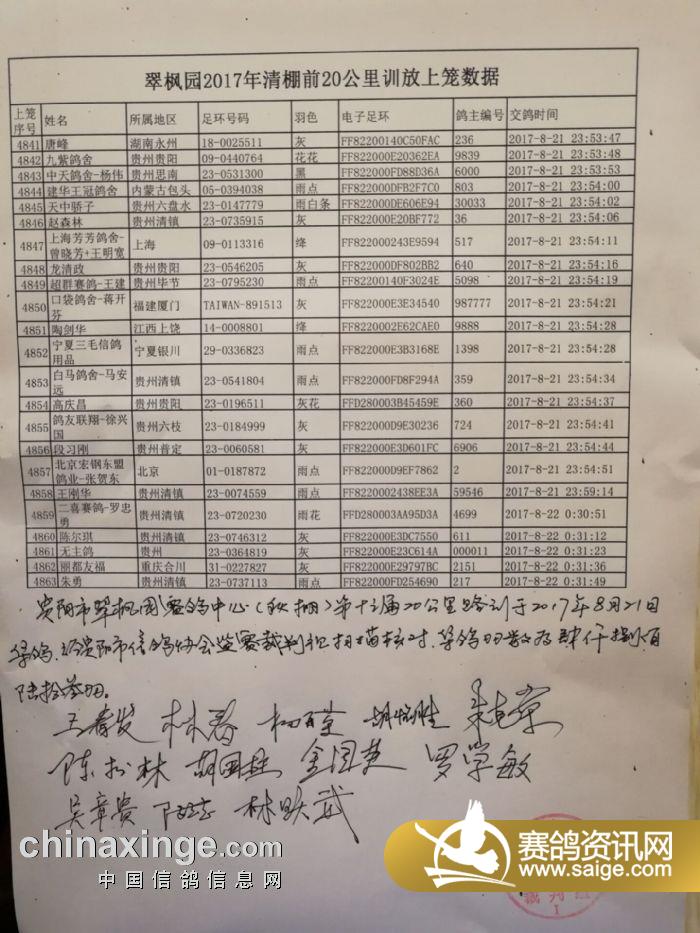 翠枫园2017年清棚前20公里训放上笼数据
上笼序号 姓名 所属地区 足环号码 羽色 电子足环 鸽主编号 交鸽时间
4841 唐峰 湖南永州 18-0025511 灰 FF82200140C50FAC 236 2017-8-21 23:53:47
4842 九紫鸽舍 贵州贵阳 09-0440764 花花 FF822000E20362EA 9839 2017-8-21 23:53:48
4843 中天鸽舍-杨伟 贵州思南 23-0531300 黑 FF822000FD88D36A 6000 2017-8-21 23:53:53
4844 建华王冠鸽舍 内蒙古包头 05-0394038 雨点 FF822000DFB2F7C0 803 2017-8-21 23:54:00
4845 天中骄子 贵州六盘水 23-0147779 雨白条 FF822000DE606E94 30033 2017-8-21 23:54:02
4846 赵森林 贵州清镇 23-0735915 灰 FF822000E20BF772 36 2017-8-21 23:54:06
4847 上海芳芳鸽舍-曾晓芳+王明宽 上海 09-0113316 绛 FF822000243E9594 517 2017-8-21 23:54:11
4848 龙清政 贵州贵阳 23-0546205 灰 FF822000DF802BB2 640 2017-8-21 23:54:16
4849 超群赛鸽-王建 贵州毕节 23-0795230 雨点 FF82200140F3024E 5098 2017-8-21 23:54:19
4850 口袋鸽舍-蒋开芬 福建厦门 TAIWAN-891513 灰 FF822000E3E34540 987777 2017-8-21 23:54:21
4851 陶剑华 江西上饶 14-0008801 绛 FF8220002E62CAE0 9888 2017-8-21 23:54:28
4852 宁夏三毛信鸽用品 宁夏银川 29-0336823 雨点 FF822000E3B3168E 1398 2017-8-21 23:54:28
4853 白马鸽舍-马安远 贵州清镇 23-0541804 雨点 FF822000FD8F294A 359 2017-8-21 23:54:34
4854 高庆昌 贵州贵阳 23-0196511 灰花 FFD280003B45459E 360 2017-8-21 23:54:37
4855 鸽友联翔-徐兴国 贵州六枝 23-0184999 灰 FF822000D9E30236 724 2017-8-21 23:54:41
4856 段习刚 贵州普定 23-0060581 灰 FF822000E3D601FC 6906 2017-8-21 23:54:44
4857 北京宏钢东盟鸽业-张贺东 北京 01-0187872 雨点 FF822000D9EF7862 2 2017-8-21 23:54:51
4858 王刚华 贵州清镇 23-0074559 雨点 FF8220002438EE3A 59546 2017-8-21 23:59:14
4859 二喜赛鸽-罗忠勇 贵州清镇 23-0720230 雨花 FFD280003AA95D3A 4699 2017-8-22 0:30:51
4860 陈尔琪 贵州清镇 23-0746312 灰 FF822000E3DC7550 611 2017-8-22 0:31:12
4861 无主鸽 贵州 23-0364819 灰 FF822000E23C614A 000011 2017-8-22 0:31:23
4862 丽都友福 重庆合川 31-0227827 灰 FF822000E29797BC 2151 2017-8-22 0:31:36
4863 朱勇 贵州清镇 23-0737113 雨点 FF822000FD254690 217 2017-8-22 0:31:49
贵阳市翠枫园赛鸽中心(秋棚)第十三届20公里路训于2017年8月21日
集鸽,经贵阳市信鸽协会监赛裁判组扫描核对,集鸽羽数为肆仟捌佰
陆拾叁羽。
王春发 林春
陈松林 金国英 罗学敏
吴章贵 林跃武
chinaxinge.com
中国信鸽信息网
赛鸽资讯网
www.saige.com
裁判组
1